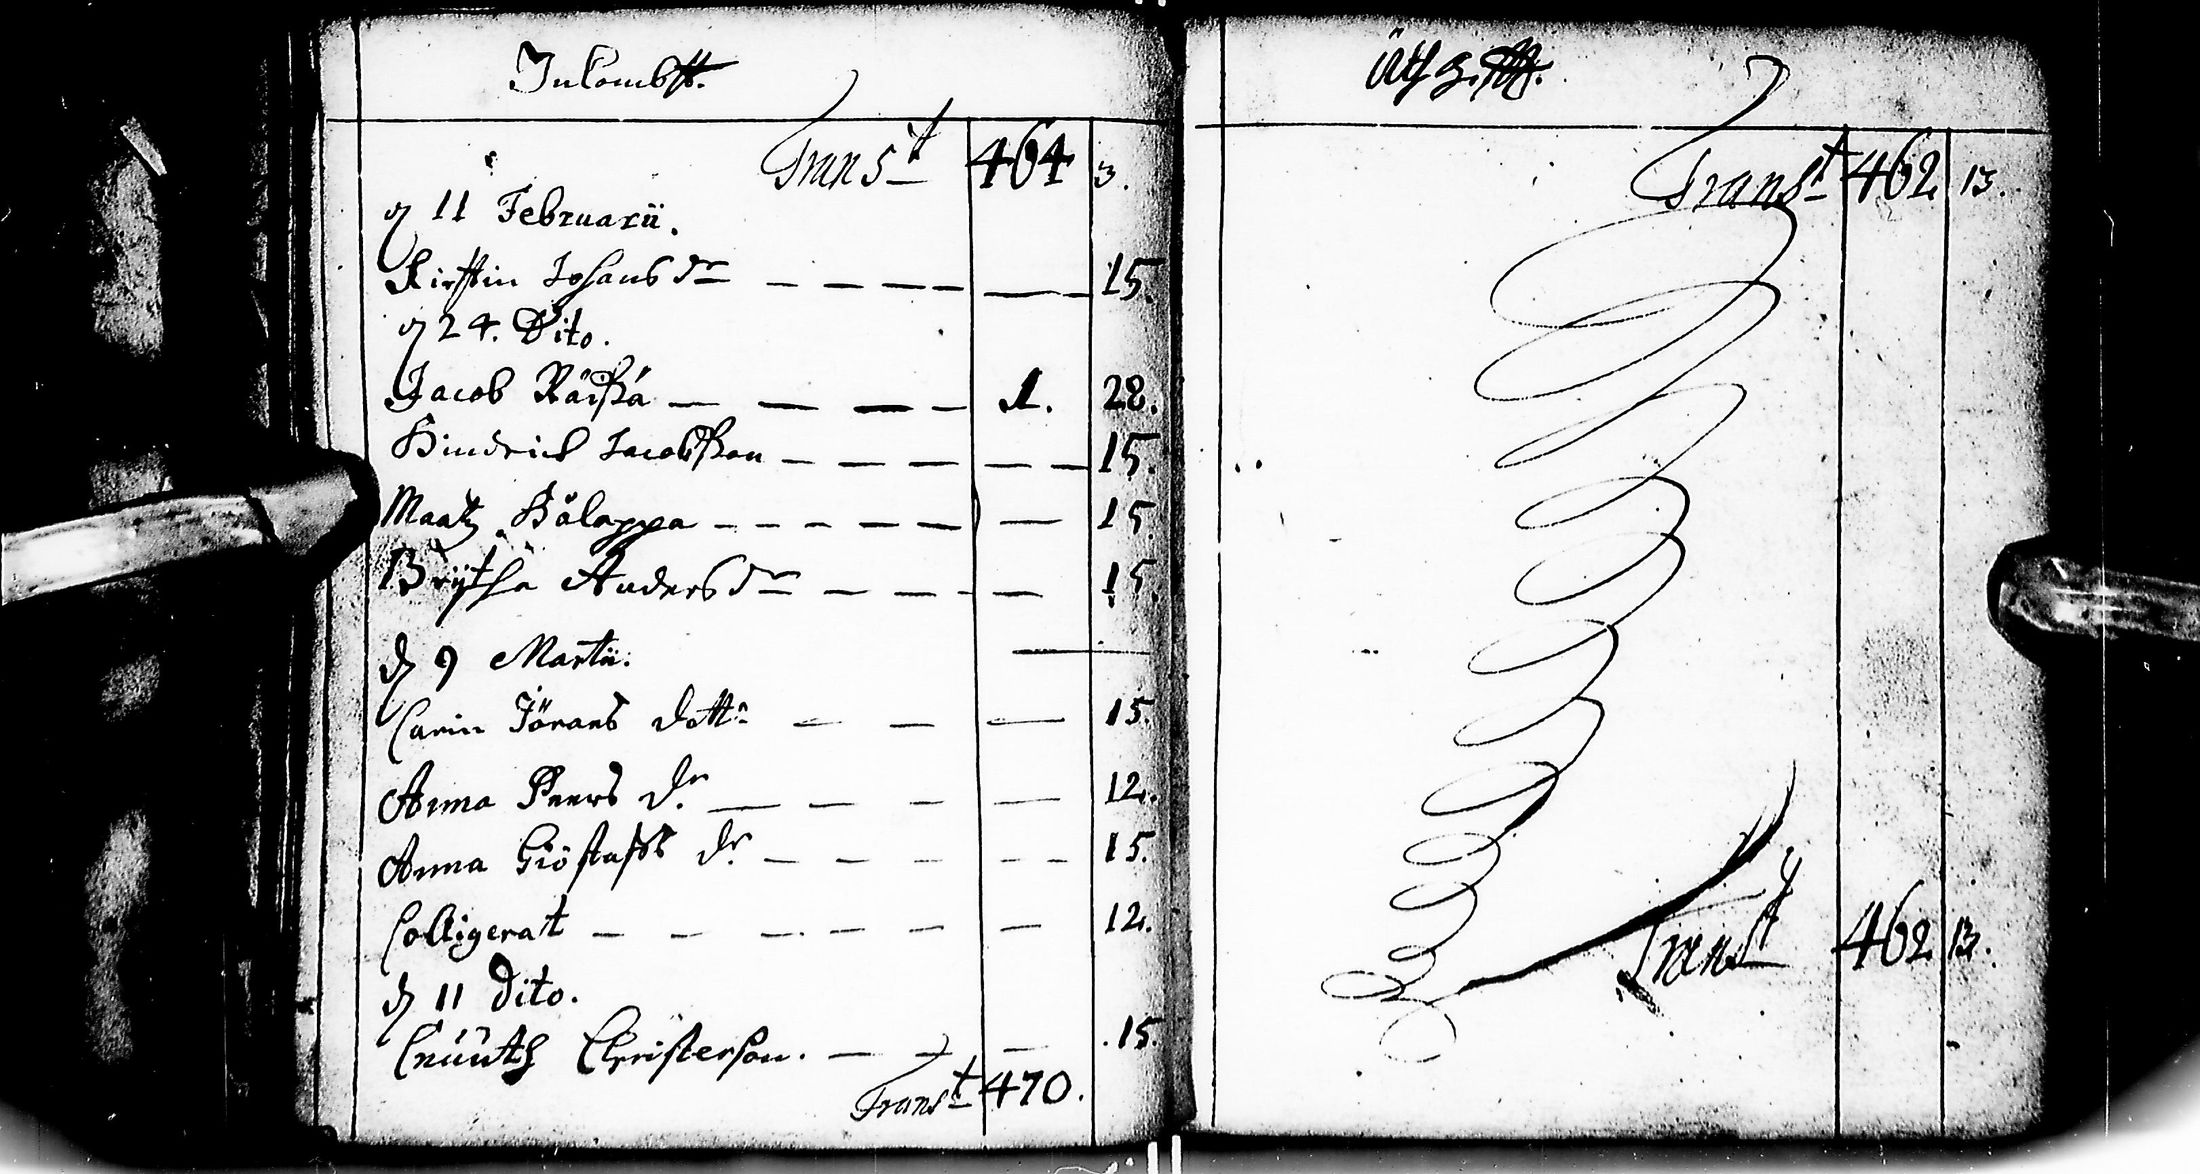 Inkombst.
Transt 464 3.
d 11 Februarii.
Kirstin Johans dr 15.
d 24. Dito.
Jacob Räiskä 1. 28.
Hindrich Jacobsson 15.
Maatz 15
Brijtha Anders dr 15.
d 9 Martii.
Carin Jörans dottr 15.
Anna Peers dr 12.
Anna Giöstafs dr 15.
Colligerat 12.
d 11 Dito.
Cnuuth Christerson. 15.
Transt 470.
Transt 462 13.
Transt 462 13.